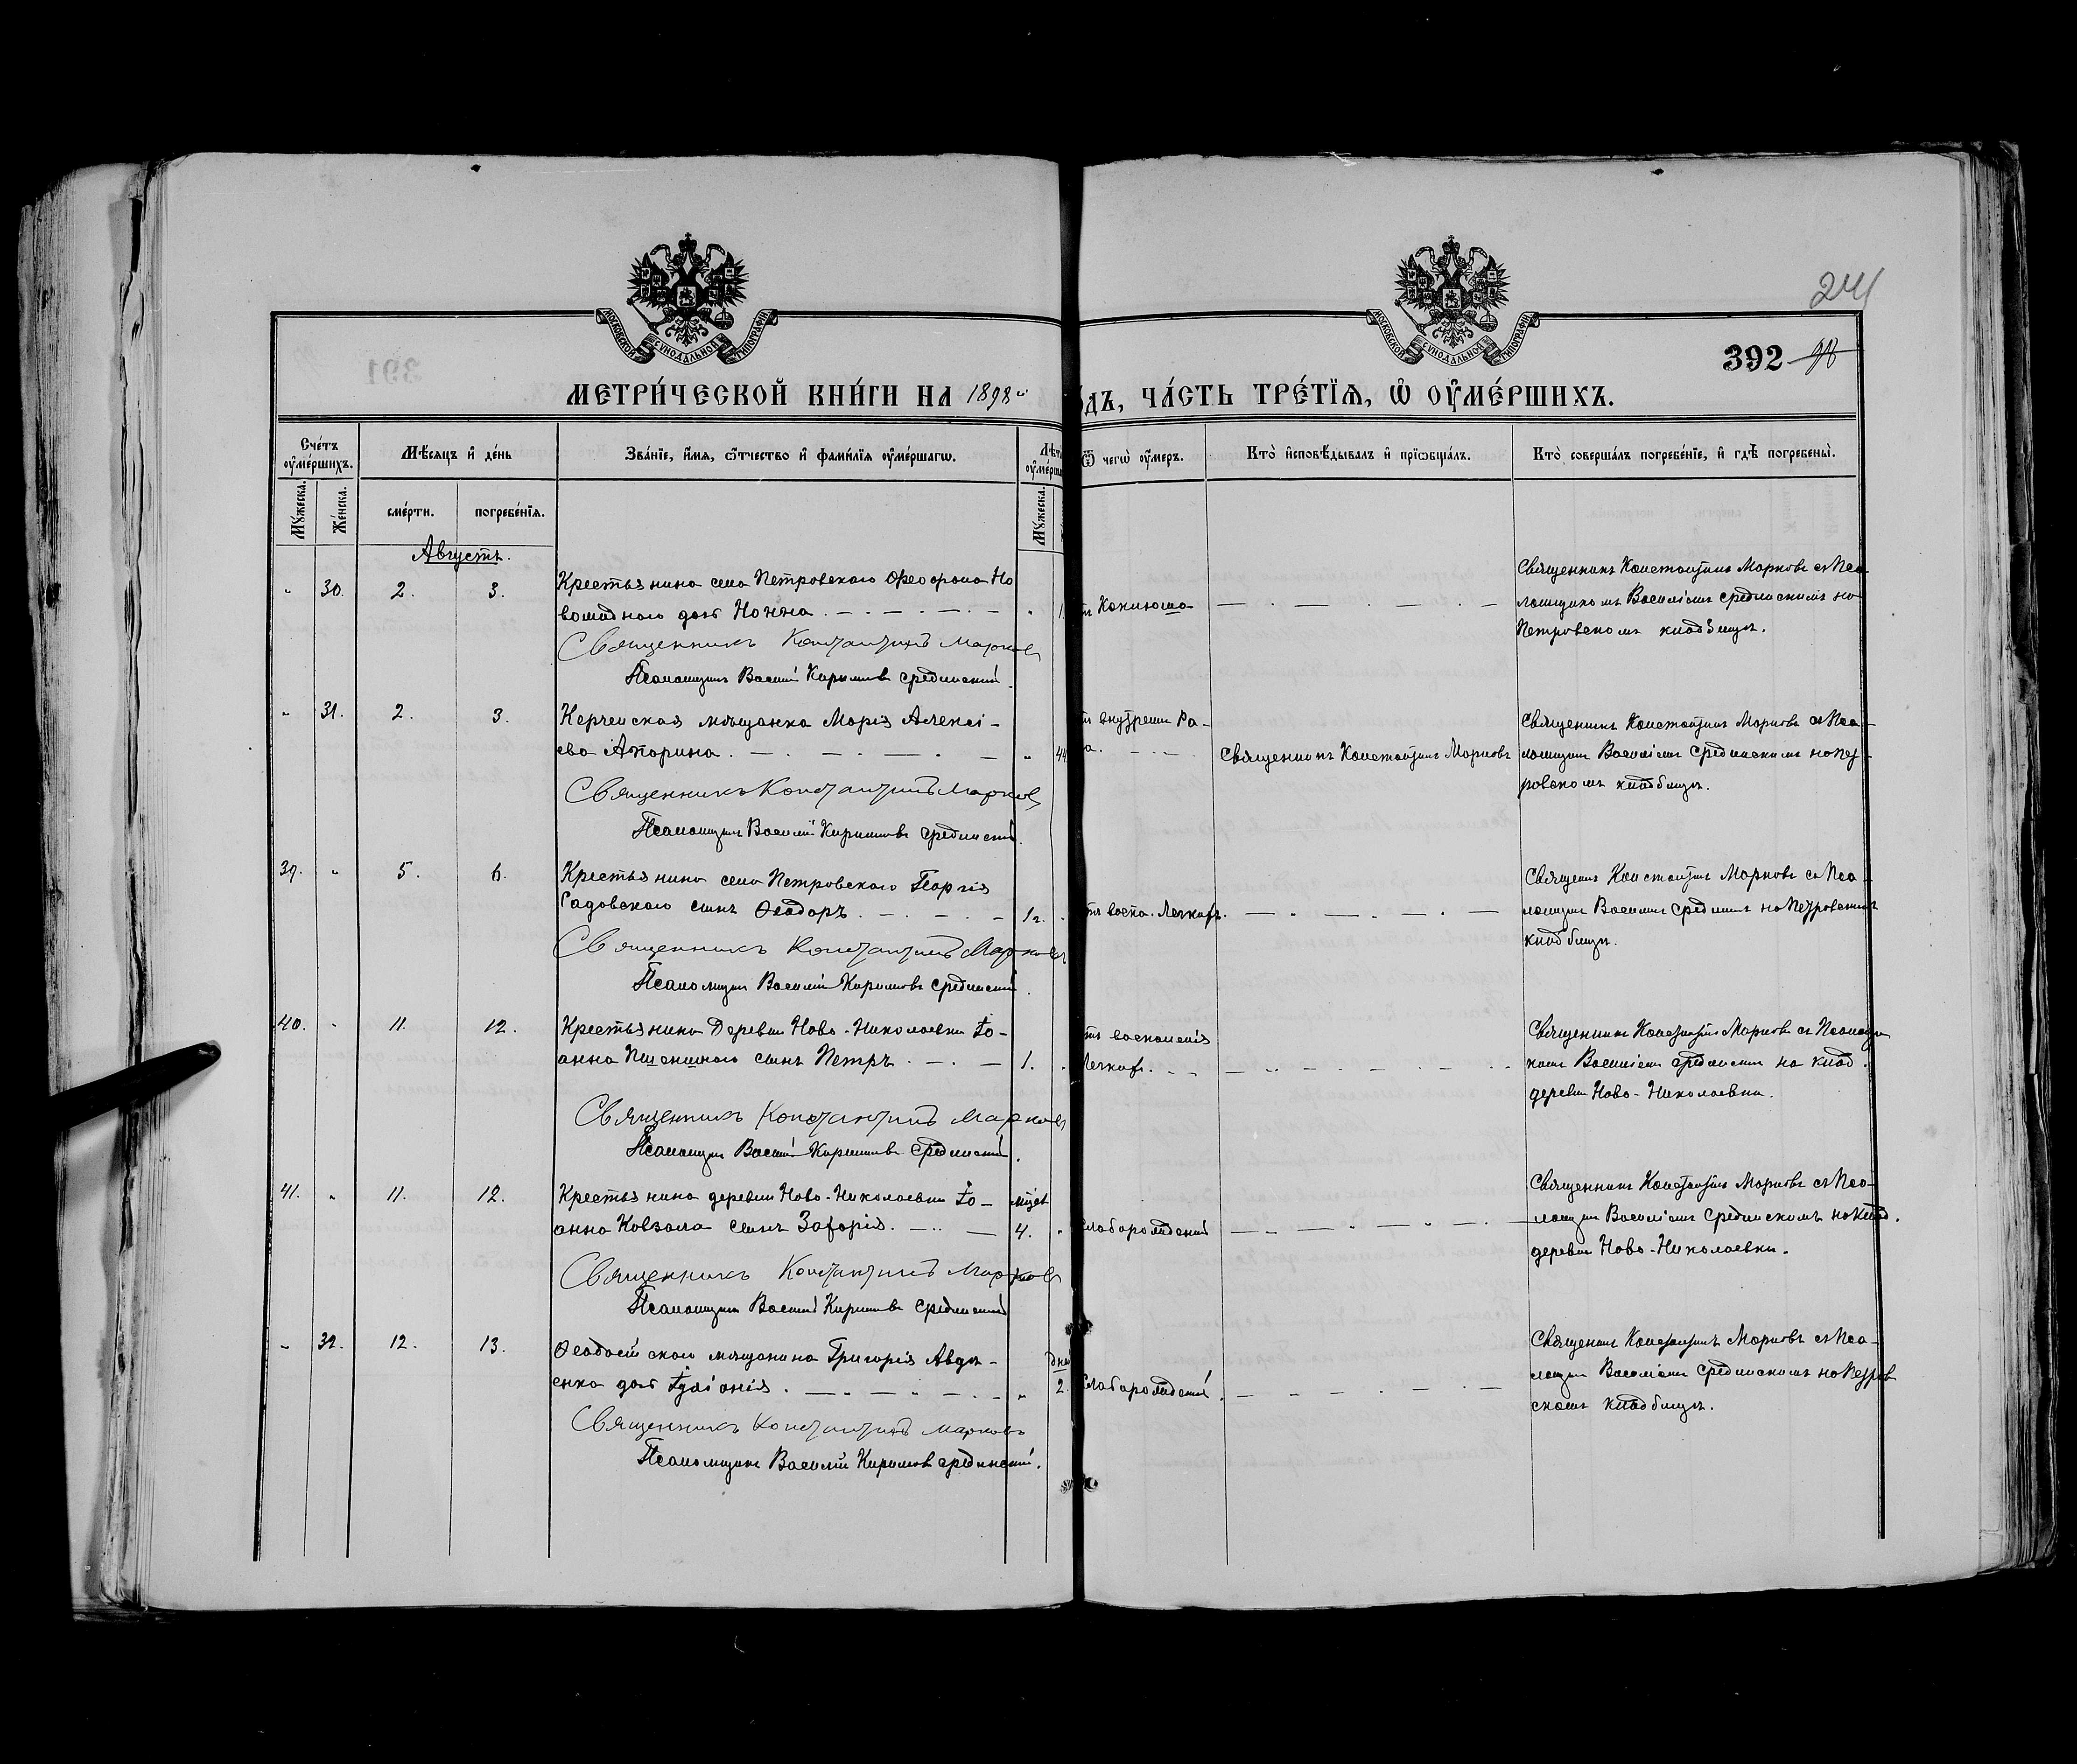 МОСКОВСКОЙ СѴНОДАЛЬНОЙ ТИПОГРАФІИ
МОСКОВСКОЙ СѴНОДАЛЬНОЙ ТИПОГРАФІИ
241
392 98
МЕТРИ́ЧЕСКОЙ КНИ́ГИ НА 1898 й
дъ, ЧА́СТЬ ТРЕ́ТІѦ, Ѡ ОУМЕ́РШИХЪ.
Сче́тъ оумершихъ.
Мѣсяцъ и де́нь
Зва́ніе, и́мя, ѻ҆́тчество и фами́лія оуме́ршагѡ.
Лѣт
оумерш
Ѿ чегѡ̀ оумеръ.
Кто̀ и҆сповѣ́дывалъ и҆ прїѡбща́лъ.
Кто̀ соверша́лъ погребе́нїе, и҆ гдѣ̀ погребены̀.
Мꙋ́жеска.
Же́нска.
сме́рти.
погребе́нїѧ.
Мꙋ́жеска.
Августъ.
" 30. 2. 3.
Крестьянина села Петровскаго Ѳеофана Но
вошиднаго дочь Нонна. "
Священникъ Константинъ Марковъ
Псаломщикъ Василій Кириловъ Срединскій.
Коклюша
Священникъ Константинъ Марковъ съ Пса
ломщикомъ Василіемъ Срединскимъ на
Петровскомъ кладбищѣ.
" 31. 2. 3.
Керченская мѣщанка Марія Алексі-
ева Апарина. " 44
Священникъ Константинъ Марковъ
Псаломщикъ Василій Кириловъ Срединскій.
внутрен Ра-
а.
Священникъ Константинъ Марковъ
Священникъ Константинъ Марковъ съ Пса-
ломщик Василіемъ Срединскимъ на Пет-
ровскомъ кладбищѣ.
39. " 5. 6.
Крестьянина села Петровскаго Георгія
Садовскаго сынъ Ѳеодоръ. 1 г.
Священникъ Константинъ Марковъ
Псаломщик Василій Кириловъ Срединскій.
тъ воспа. Легкихъ.
Священ Константинъ Марковъ съ Пса-
ломщик Василіем Средин на Петровским
кладбищѣ.
40. " 11. 12.
Крестьянина Деревни Ново-Николаевки Іо-
анна Пшенишнаго сынъ Петръ. 1.
Священникъ Константинъ Марковъ
Псаломщик Василій Кириловъ Срединскій.
тъ воспаленія
Легких.
Священникъ Константинъ Марковъ съ Псаломщи
комъ Василіемъ Срединским на клад.
деревни Ново-Николаевки.
41. " 11. 12.
Крестьянина деревни Ново-Николаевки Іо-
анна Ковзала сынъ Захарія. мѣсяц
4. "
Священникъ Константинъ Марковъ
Псаломщик Василій Кириловъ Срединскій
Слаборожденій
Священникъ Константинъ Марковъ съ Пса-
ломщик Василіемъ Срединскимъ на клад.
деревни Ново-Николаевки.
" 32. 12. 13.
Ѳеодосійскаго мѣщанина Григорія Авдѣ-
енка дочь Іуліанія. " дней
2.
Священникъ Константинъ Марковъ
Псаломщикъ Василій Кириловъ Срединскій.
Слаборожденій.
Священникъ Константинъ Марковъ съ Пса-
ломщик Василіемъ Срединскимъ на Петров
скомъ кладбищѣ.